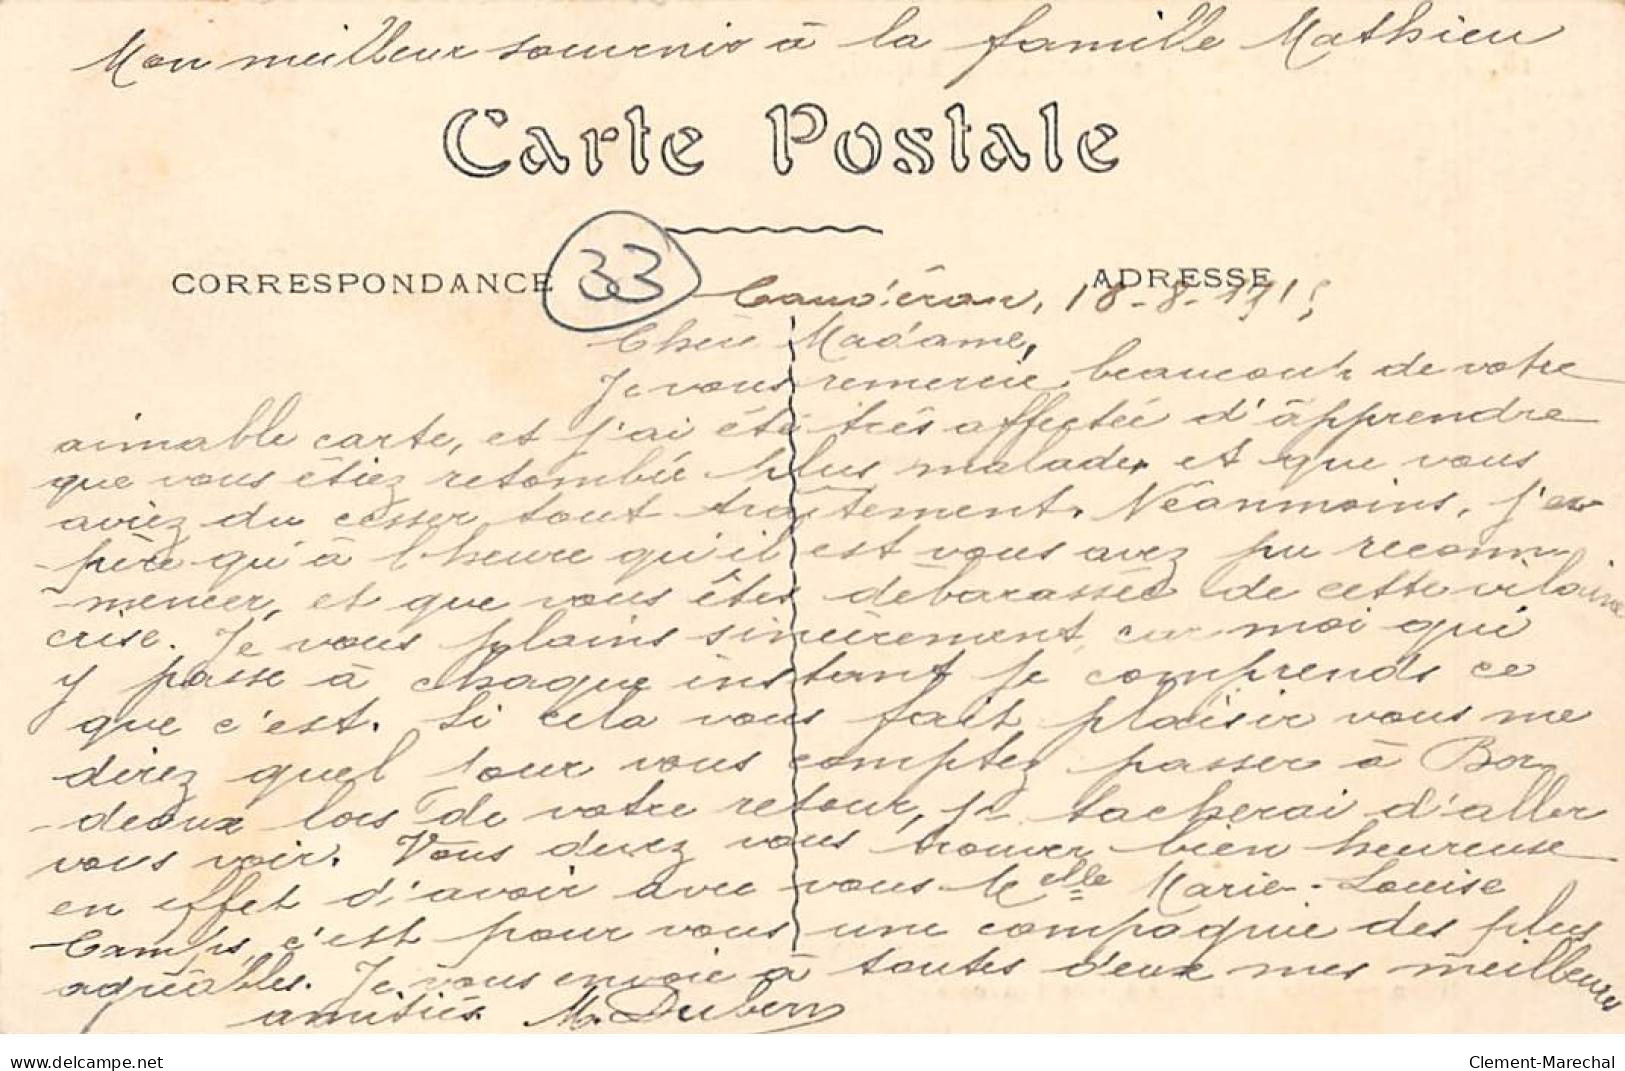 Mon meilleur souvenir à la famille Mathieu
Carte Postale
33
CORRESPONDANCE
ADRESSE
Caudéran, 18-8-1915
Chère Madame,
Je vous remercie beaucoup de votre
aimable carte, et j'ai été très affectée d'apprendre
que vous étiez retombée plus malade, et que vous
aviez du cesser tout traitement. Néanmoins, j'es-
-père qu'à l'heure qu'il est vous avez pu recom-
-mencer, et que vous êtes débarassée de cette vilaine
crise. Je vous plains sincèrement, car moi qui
y passe à chaque instant je comprends ce
que c'est. Si cela vous fait plaisir vous me
direz quel jour vous comptez passer à Bor-
-deaux lors de votre retour, je tacherai d'aller
vous voir. Vous devez vous trouver bien heureuse
en effet d'avoir avec vous Melle Marie-Louise
Camps, c'est pour vous une compagnie des plus
agréables. Je vous envoie à toutes deux mes meilleures
amitiés. M. Dubern
www.delcampe.net
Clement-Marechal